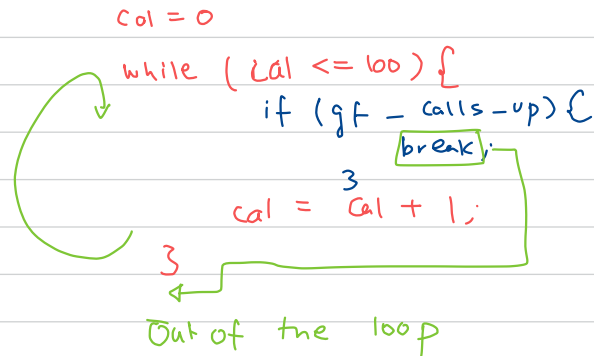 Col = 0
while (cal <= 100) {
if (gf - calls - up) {
break;
}
cal = cal + 1;
}
Out of the loop